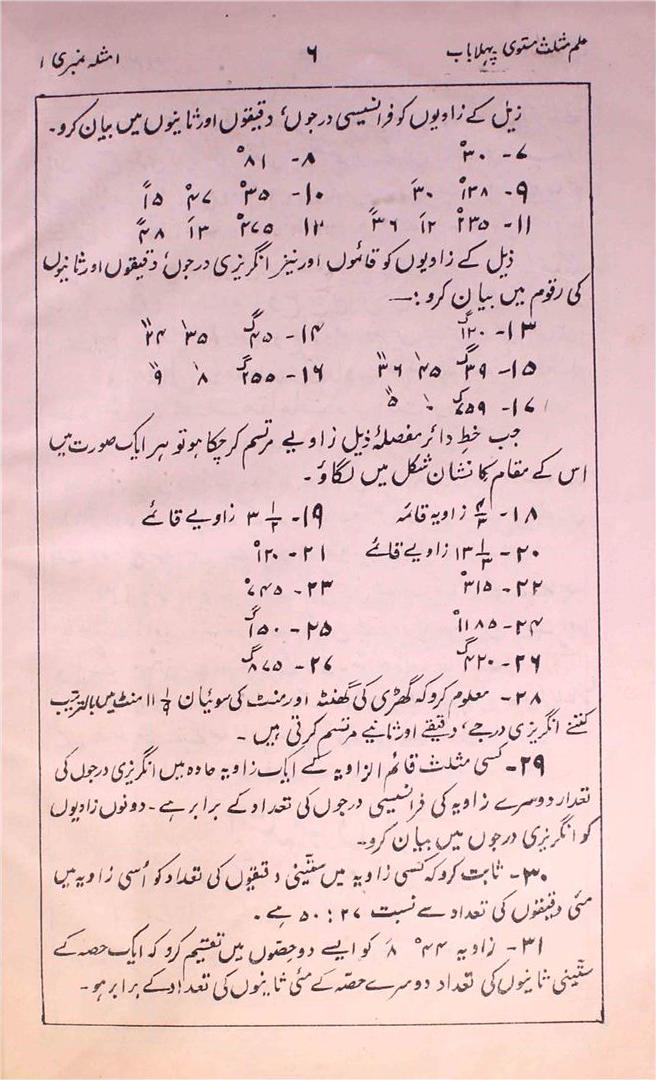 علم مثلث مستوی پہلا باب ۶ امثلہ نمبری ۱
زیل کے زاویوں کو فرانسیسی درجوں، دقیقوں اور ثانیوں میں بیان کرو۔
۷- ۳۰° ۸- ۸۱°
۹- ۱۲۸° ۳۰′ ۱۰- ۳۵° ۴۷′ ۱۵″
۱۱- ۲۳۵° ۱۲′ ۳۶″ ۱۲- ۲۷۵° ۱۳′ ۴۸″
ذیل کے زاویوں کو قائموں اور نیز انگریزی درجوں، دقیقوں اور ثانیوں
کی رقوم میں بیان کرو:—
۱۳- ۱۲۰گ ۱۴- ۴۵گ ۳۵‵ ۲۴‶
۱۵- ۳۹گ ۴۵‵ ۳۶‶ ۱۶- ۲۵۵گ ۸‵ ۹‶
۱۷- ۷۵۹گ ۰‵ ۵‶
جب خطِ دائر مفصلۂ ذیل زاویے مرتسم کر چکا ہو تو ہر ایک صورت میں
اس کے مقام کا نشان شکل میں لگاؤ۔
۱۸- ۴/۳ زاویہ قائمہ ۱۹- ۳ ۱/۲ زاویے قائمے
۲۰- ۱۳ ۱/۳ زاویے قائمے ۲۱- ۱۲۰°
۲۲- ۳۱۵° ۲۳- ۷۴۵°
۲۴- ۱۱۸۵° ۲۵- ۱۵۰گ
۲۶- ۴۲۰گ ۲۷- ۸۷۵گ
۲۸- معلوم کرو کہ گھڑی کی گھنٹہ اور منٹ کی سوئیاں ۱۱ ۱/۹ منٹ میں بالترتیب
کتنے انگریزی درجے، دقیقے اور ثانیے مرتسم کرتی ہیں۔
۲۹- کسی مثلث قائم الزاویہ کے ایک زاویہ حادہ میں انگریزی درجوں کی
تعداد دوسرے زاویہ کی فرانسیسی درجوں کی تعداد کے برابر ہے۔ دونوں زاویوں
کو انگریزی درجوں میں بیان کرو۔
۳۰- ثابت کرو کہ کسی زاویہ میں ستّینی دقیقوں کی تعداد کو اُسی زاویہ میں
مئی دقیقوں کی تعداد سے نسبت ۲۷ : ۵۰ ہے۔
۳۱- زاویہ ۴۴° ۸′ کو ایسے دو حصوں میں تقسیم کرو کہ ایک حصہ کے
ستّینی ثانیوں کی تعداد دوسرے حصہ کے مئی ثانیوں کی تعداد کے برابر ہو۔